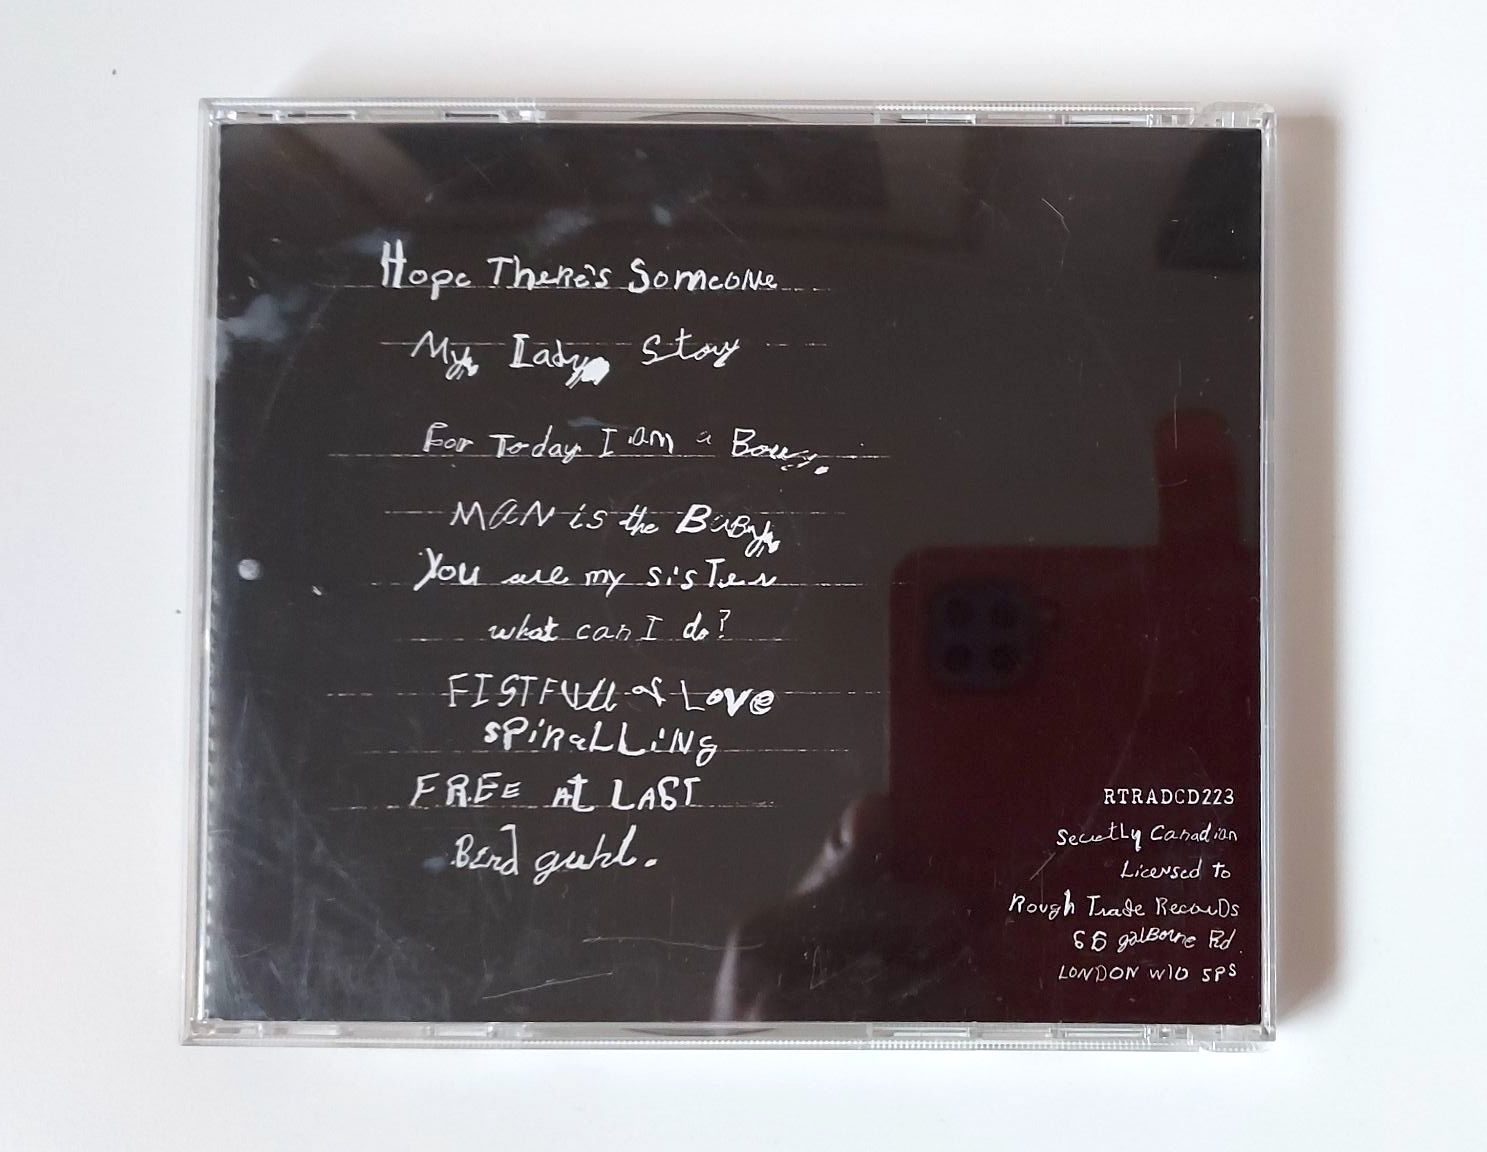 Hope There's Someone
My Lady Story
For Today I am a Bouy.
MAN is the BaBy
You are my sisTer
what can I do?
FISTFUll of Love
sPiRaLLiNg
FREE At LAST
Bird guhl.
RTRADCD223
SecretLy Canadian
Licensed To
Rough Trade RecorDs
66 golBorne Rd.
LONDON W10 5PS